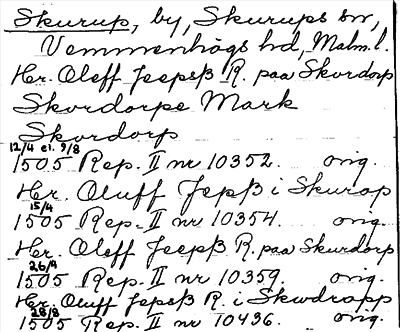 Skurup, by, Skurups sn,
Vemmenhögs hd, Malm. l.
Her. Oleff Jeepsß R. paa Skordorp
Skordorpe Mark
Skordorp
12/4 el. 9/8
1505 Rep. II nr 10352. orig.
Her. Oluff Jepß i Skurop
15/4
1505 Rep. II nr 10354. orig.
Her. Oleff Jeepß R. paa Skurdorp
26/9
1505 Rep. II nr 10359. orig.
Her. Oluff Jepsß R. i Skwdrapp
28/8
1505 Rep. II nr 10436. orig.